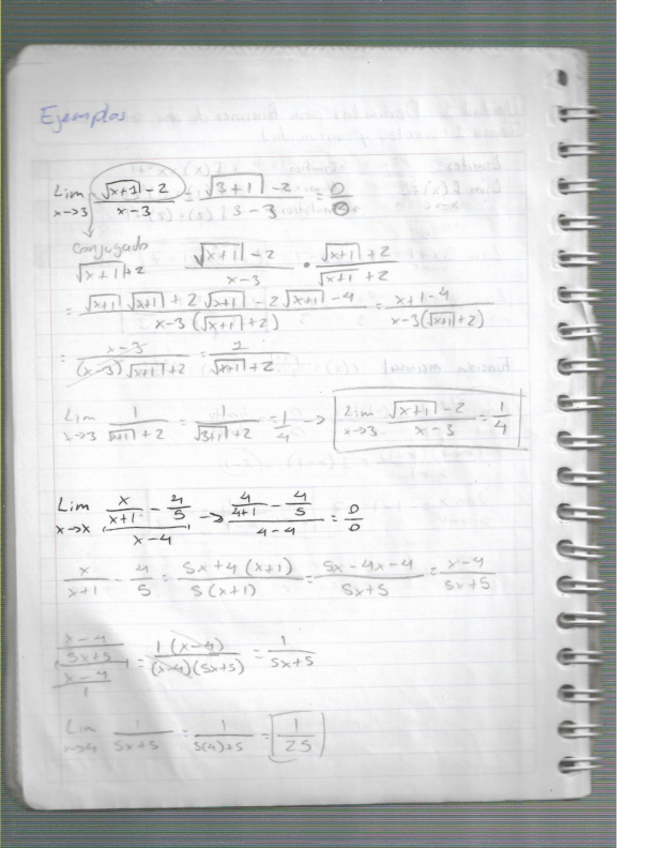 Ejemplos
Lim x→3 (√x+1 - 2)/(x-3) = (√3+1 - 2)/(3-3) = 0/0
Conjugado
√x+1 + 2    (√x+1 - 2)/(x-3) • (√x+1 + 2)/(√x+1 + 2)
= (√x+1 √x+1 + 2√x+1 - 2√x+1 - 4)/(x-3(√x+1 + 2)) = (x+1-4)/(x-3(√x+1 + 2))
= (x-3)/((x-3)√x+1 + 2) = 1/(√x+1 + 2)
Lim x→3 1/(√x+1 + 2) = 1/(√3+1 + 2) = 1/4 → Lim x→3 (√x+1 - 2)/(x-3) = 1/4
Lim x→x (x/(x+1) - 4/5)/(x-4) → (4/(4+1) - 4/5)/(4-4) = 0/0
x/(x+1) - 4/5 = (5x+4(x+1))/(5(x+1)) = (5x-4x-4)/(5x+5) = (x-4)/(5x+5)
((x-4)/(5x+5))/((x-4)/1) = (1(x-4))/((x-4)(5x+5)) = 1/(5x+5)
Lim x→4 1/(5x+5) = 1/(5(4)+5) = 1/25